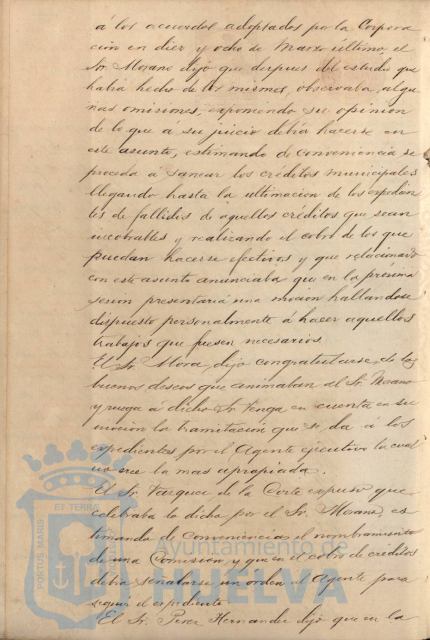 á los acuerdos adoptados por la Corpora
ción en diez y ocho de Marzo último, el
Sr. Morano dijo que despues del estudio que
habia hecho de los mismos, observaba algu
nas omisiones, exponiendo su opinion
de lo que a su juicio debia hacerse en
este asunto, estimando de conveniencia se
proceda á sanear los créditos municipales
llegando hasta la ultimacion de los expedien
tes de fallidos de aquellos créditos que sean
incobrables y realizando el cobro de los que
puedan hacerse efectivos y que relacionado
con este asunto anunciaba que en la próxima
sesion presentaria una mocion hallandose
dispuesto personalmente á hacer aquellos
trabajos que fuesen necesarios.
El Sr. Mora, dijo congratularse de los
buenos deseos que animaban al Sr. Morano
y ruega á dicho Sr. tenga en cuenta en su
mocion la tramitación que se da á los
expedientes por el Agente ejecutivo la cual
no cree la mas apropiada.
El Sr. Vazquez de la Corte expuso que
celebraba lo dicho por el Sr. Morano, es
timando de conveniencia el nombramiento
de una Comision, y que en el cobro de creditos
debia señalarse un orden al Agente para
seguir el expediente.
El Sr. Perez Hernandez dijo que en la
PORTUS MARIS ET TERRAE
Ayuntamiento de
HUELVA